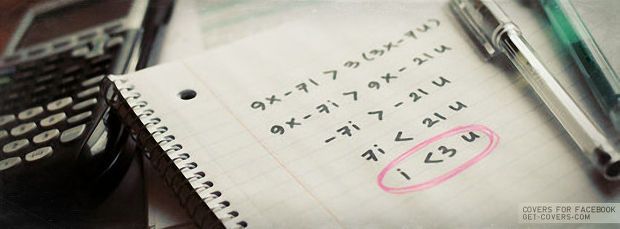 9x-7i > 3(3x-7u)
9x-7i > 9x-21u
-7i > -21u
7i < 21u
i <3 u
COVERS FOR FACEBOOK
GET-COVERS-COM